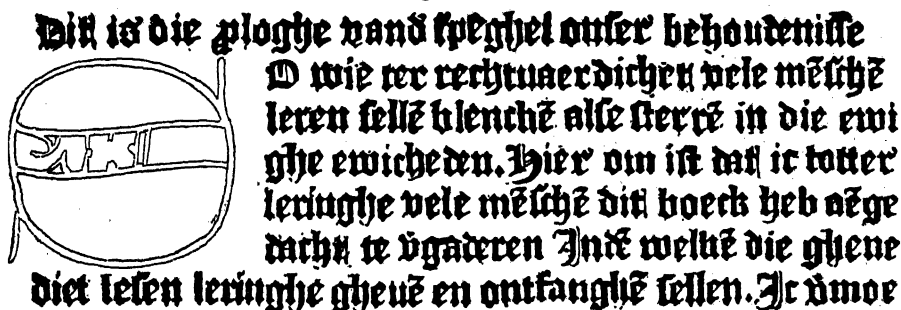 Dit is die ploghe vand spēghel onser behoudenisse
O wie ter rechtuaerdichen vele mēschē
leren sellē blenchē alse sterrē in die ewi
ghe ewicheden. Hier om ist dat ic totter
leringhe vele mēschē dit boeck heb aēge
dacht te v̄gaderen Indē welkē die ghene
diet lesen leringhe gheuē en ontfanghē sellen. Ic v̄moe